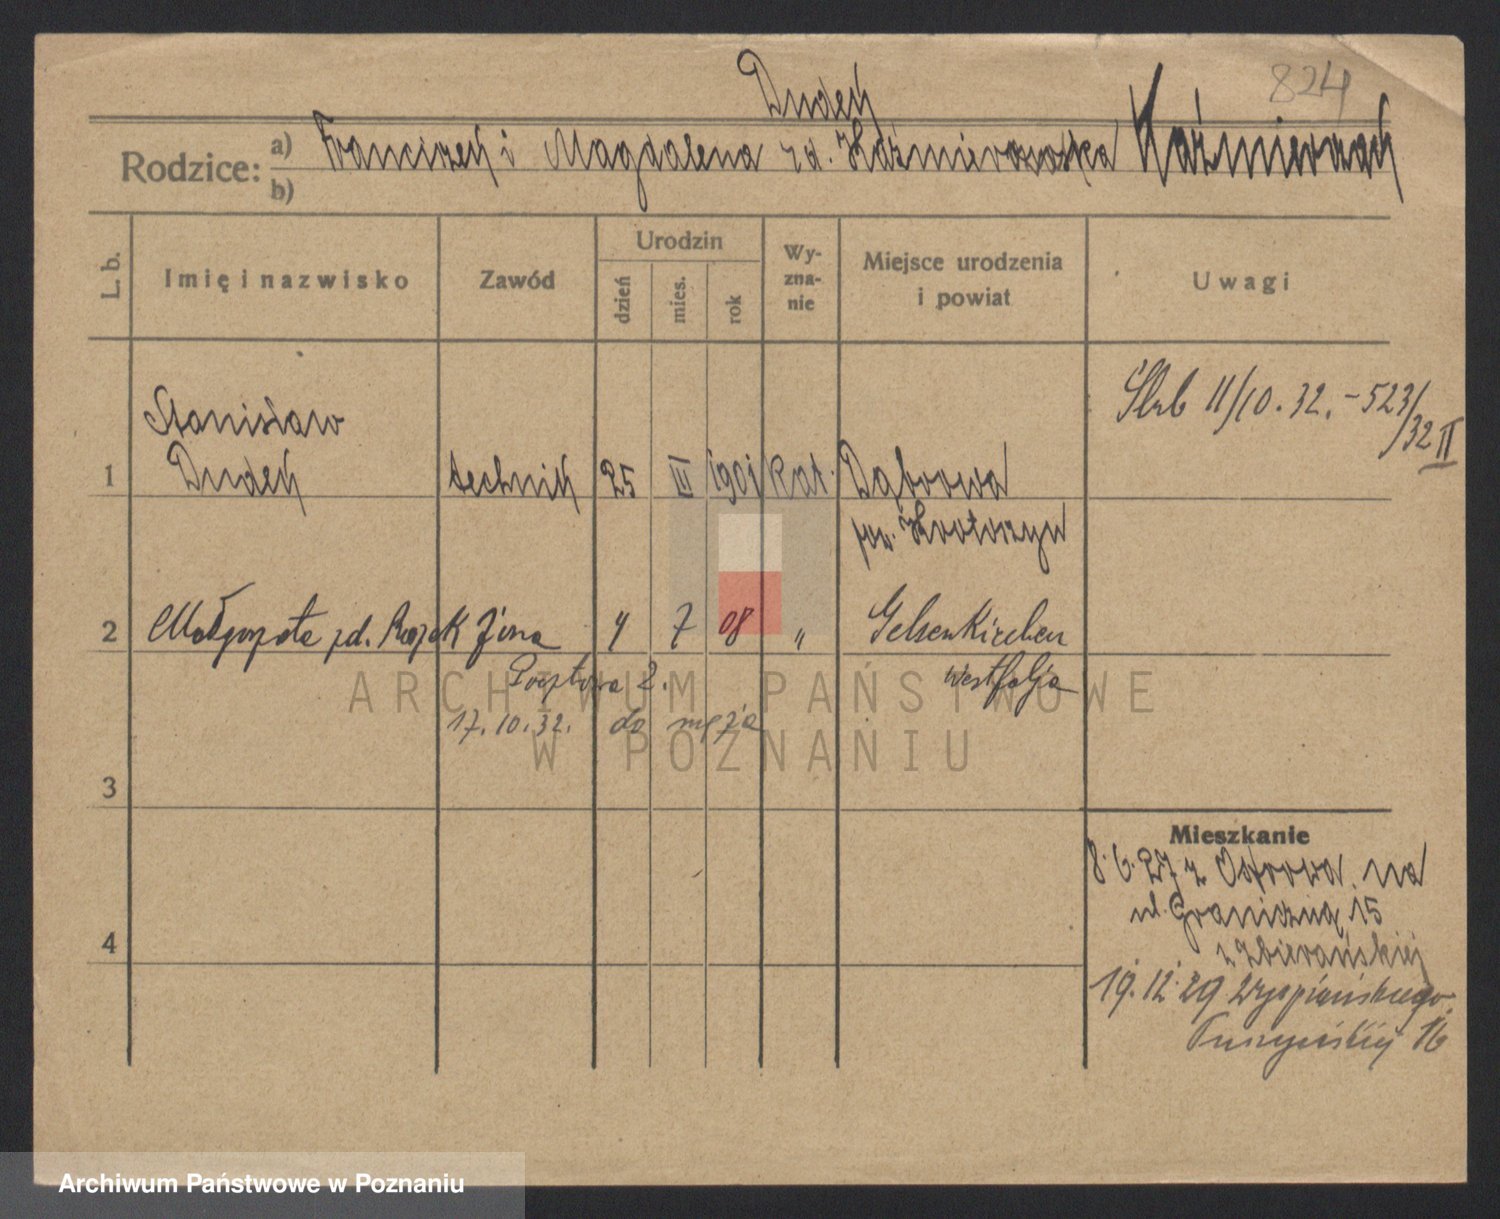 824
Dudek
Rodzice: a) Franciszek i Magdalena zd. Kaźmierowska Kaźmierczak
b)
L. b.
Imię i nazwisko
Zawód
Urodzin
dzień
mies.
rok
Wy-
zna-
nie
Miejsce urodzenia
i powiat
Uwagi
Ślub 11/10.32. - 523/
/32 II
Stanisław
1 Dudek technik 25 III 1901 kat. Dąbrowa
pow. Krotoszyn
2 Małgorzata zd. Rojek żona 4 7 08 " Gelsenkirchen
Westfalja
Pocztowa 2.
17.10.32. do męża
3
4
Mieszkanie
8.6.27 z Ostrowa na
ul. Graniczną 15
19.12.29 Wyspiańskiego
16
ARCHIWUM PAŃSTWOWE
W POZNANIU
Archiwum Państwowe w Poznaniu